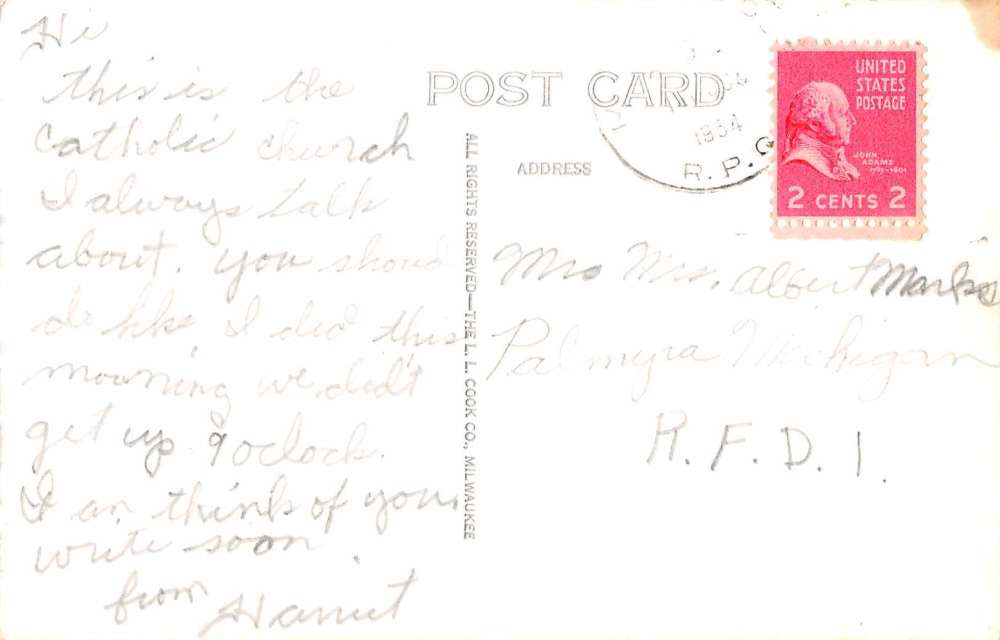 Hi
this is the
Catholic church
I always talk
about. you should
do like I did this
mourning we didt
get up 9 oclock.
I an think of you
write soon.
from Harriet
POST CARD
ADDRESS
ALL RIGHTS RESERVED—THE L. L. COOK CO., MILWAUKEE
1954
R.P.O
UNITED
STATES
POSTAGE
JOHN
ADAMS
1797-1801
2 CENTS 2
Mrs Albert Marks
Palmyra Michigan
R.F.D. 1.